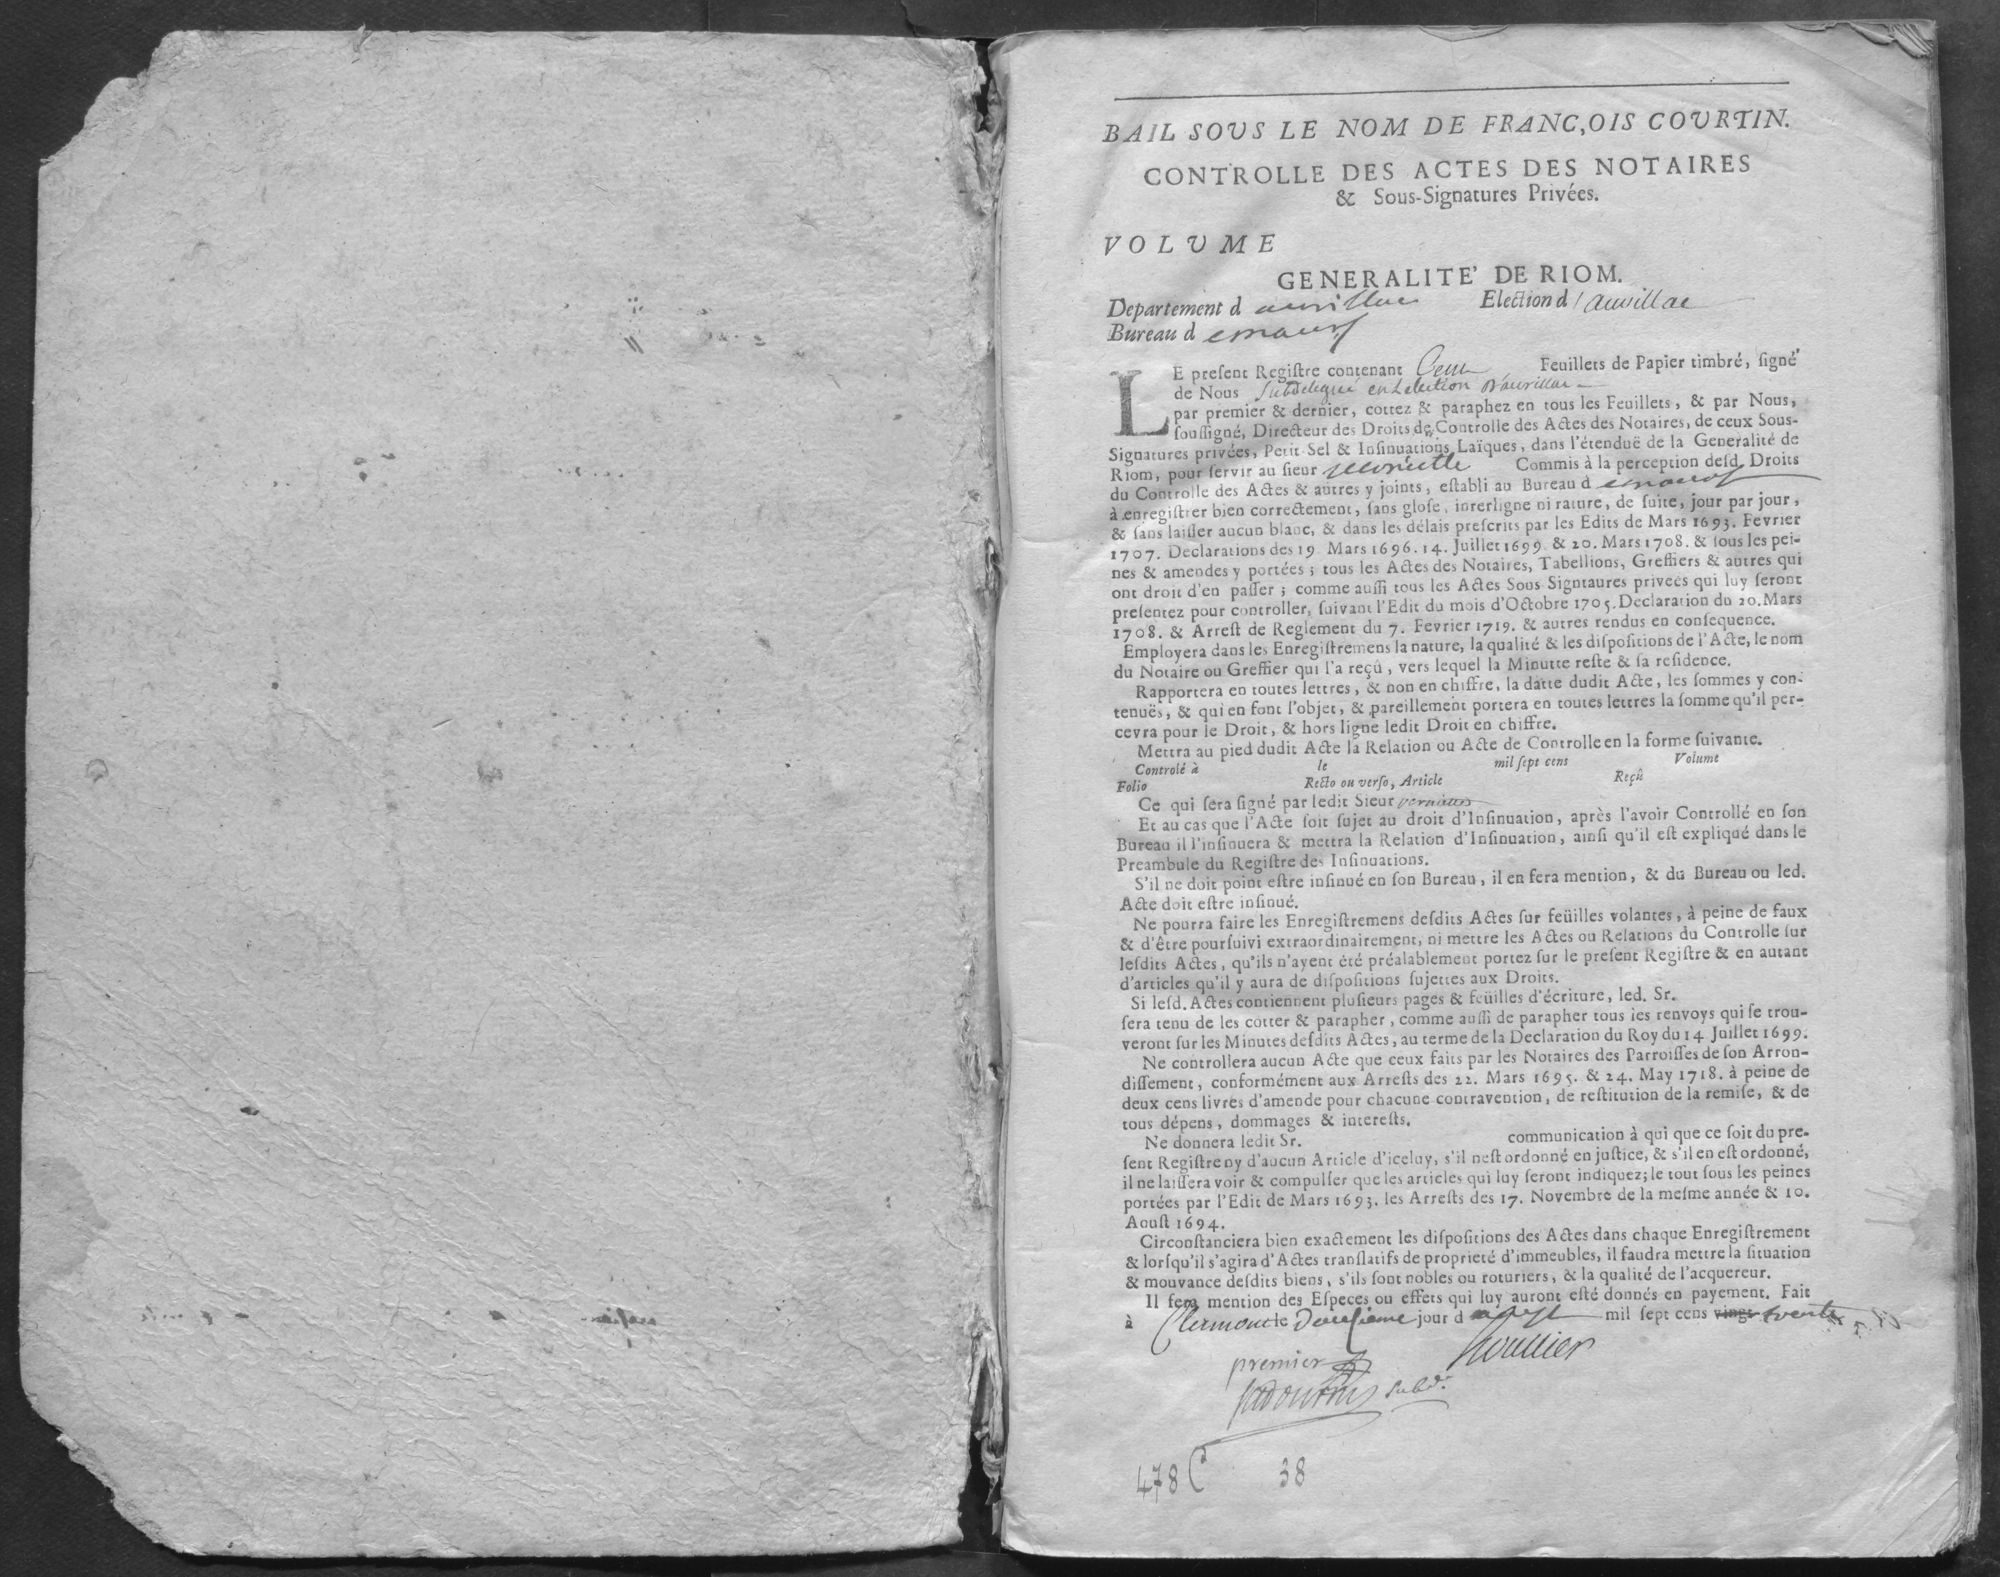 BAIL SOUS LE NOM DE FRANC,OIS COURTIN.
CONTROLLE DES ACTES DES NOTAIRES
& Sous-Signatures Privées.
VOLUME
GENERALITE' DE RIOM.
Departement d aurillac Election d'aurillac
Bureau d maurs
LE preſent Regiſtre contenant Cent Feuillets de Papier timbré, ſigné
de Nous Subdelegué en Lelection D'aurillac
par premier & dernier, cottez & paraphez en tous les Feuillets, & par Nous,
ſouſſigné, Directeur des Droits de Controlle des Actes des Notaires, de ceux Sous-
Signatures privées, Petit Sel & Inſinuations Laïques, dans l'étenduë de la Generalité de
Riom, pour ſervir au ſieur Commis à la perception deſd. Droits
du Controlle des Actes & autres y joints, eſtabli au Bureau d maurs
à enregiſtrer bien correctement, ſans gloſe, interligne ni rature, de ſuite, jour par jour,
& ſans laiſſer aucun blanc, & dans les délais preſcrits par les Edits de Mars 1693. Fevrier
1707. Declarations des 19 Mars 1696. 14. Juillet 1699 & 20. Mars 1708. & ſous les pei-
nes & amendes y portées ; tous les Actes des Notaires, Tabellions, Greffiers & autres qui
ont droit d'en paſſer ; comme auſſi tous les Actes Sous Signtaures privées qui luy ſeront
preſentez pour controller, ſuivant l'Edit du mois d'Octobre 1705. Declaration du 20. Mars
1708. & Arreſt de Reglement du 7. Fevrier 1719. & autres rendus en conſequence.
Employera dans les Enregiſtremens la nature, la qualité & les diſpoſitions de l'Acte, le nom
du Notaire ou Greffier qui l'a reçû, vers lequel la Minutte reſte & ſa reſidence.
Rapportera en toutes lettres, & non en chiffre, la datte dudit Acte, les ſommes y con-
tenuës, & qui en font l'objet, & pareillement portera en toutes lettres la ſomme qu'il per-
cevra pour le Droit, & hors ligne ledit Droit en chiffre.
Mettra au pied dudit Acte la Relation ou Acte de Controlle en la forme ſuivante.
Controlé à le mil ſept cens Volume
Folio Recto ou verſo, Article Reçû
Ce qui ſera ſigné par ledit Sieur
Et au cas que l'Acte ſoit ſujet au droit d'Inſinuation, après l'avoir Controllé en ſon
Bureau il l'inſinuera & mettra la Relation d'Inſinuation, ainſi qu'il eſt expliqué dans le
Preambule du Regiſtre des Inſinuations.
S'il ne doit point eſtre inſinué en ſon Bureau, il en fera mention, & du Bureau ou led.
Acte doit eſtre inſinué.
Ne pourra faire les Enregiſtremens deſdits Actes ſur feüilles volantes, à peine de faux
& d'être pourſuivi extraordinairement, ni mettre les Actes ou Relations du Controlle ſur
leſdits Actes, qu'ils n'ayent été préalablement portez ſur le preſent Regiſtre & en autant
d'articles qu'il y aura de diſpoſitions ſujettes aux Droits.
Si leſd. Actes contiennent pluſieurs pages & feüilles d'écriture, led. Sr.
ſera tenu de les cotter & parapher, comme auſſi de parapher tous les renvoys qui ſe trou-
veront ſur les Minutes deſdits Actes, au terme de la Declaration du Roy du 14 Juillet 1699.
Ne controllera aucun Acte que ceux faits par les Notaires des Parroiſſes de ſon Arron-
diſſement, conformément aux Arreſts des 22. Mars 1695. & 24. May 1718. à peine de
deux cens livres d'amende pour chacune contravention, de reſtitution de la remiſe, & de
tous dépens, dommages & intereſts.
Ne donnera ledit Sr. communication à qui que ce ſoit du pre-
ſent Regiſtre ny d'aucun Article d'iceluy, s'il n'eſt ordonné en juſtice, & s'il en eſt ordonné,
il ne laiſſera voir & compulſer que les articles qui luy ſeront indiquez; le tout ſous les peines
portées par l'Edit de Mars 1693. les Arreſts des 17. Novembre de la meſme année & 10.
Aouſt 1694.
Circonſtanciera bien exactement les diſpoſitions des Actes dans chaque Enregiſtrement
& lorſqu'il s'agira d'Actes tranſlatifs de proprieté d'immeubles, il faudra mettre la ſituation
& mouvance deſdits biens, s'ils ſont nobles ou roturiers, & la qualité de l'acquereur.
Il fera mention des Eſpeces ou effets qui luy auront eſté donnés en payement. Fait
à Clermont le Douzieme jour d mil ſept cens vingt trente
premier
subd.
478 C 38